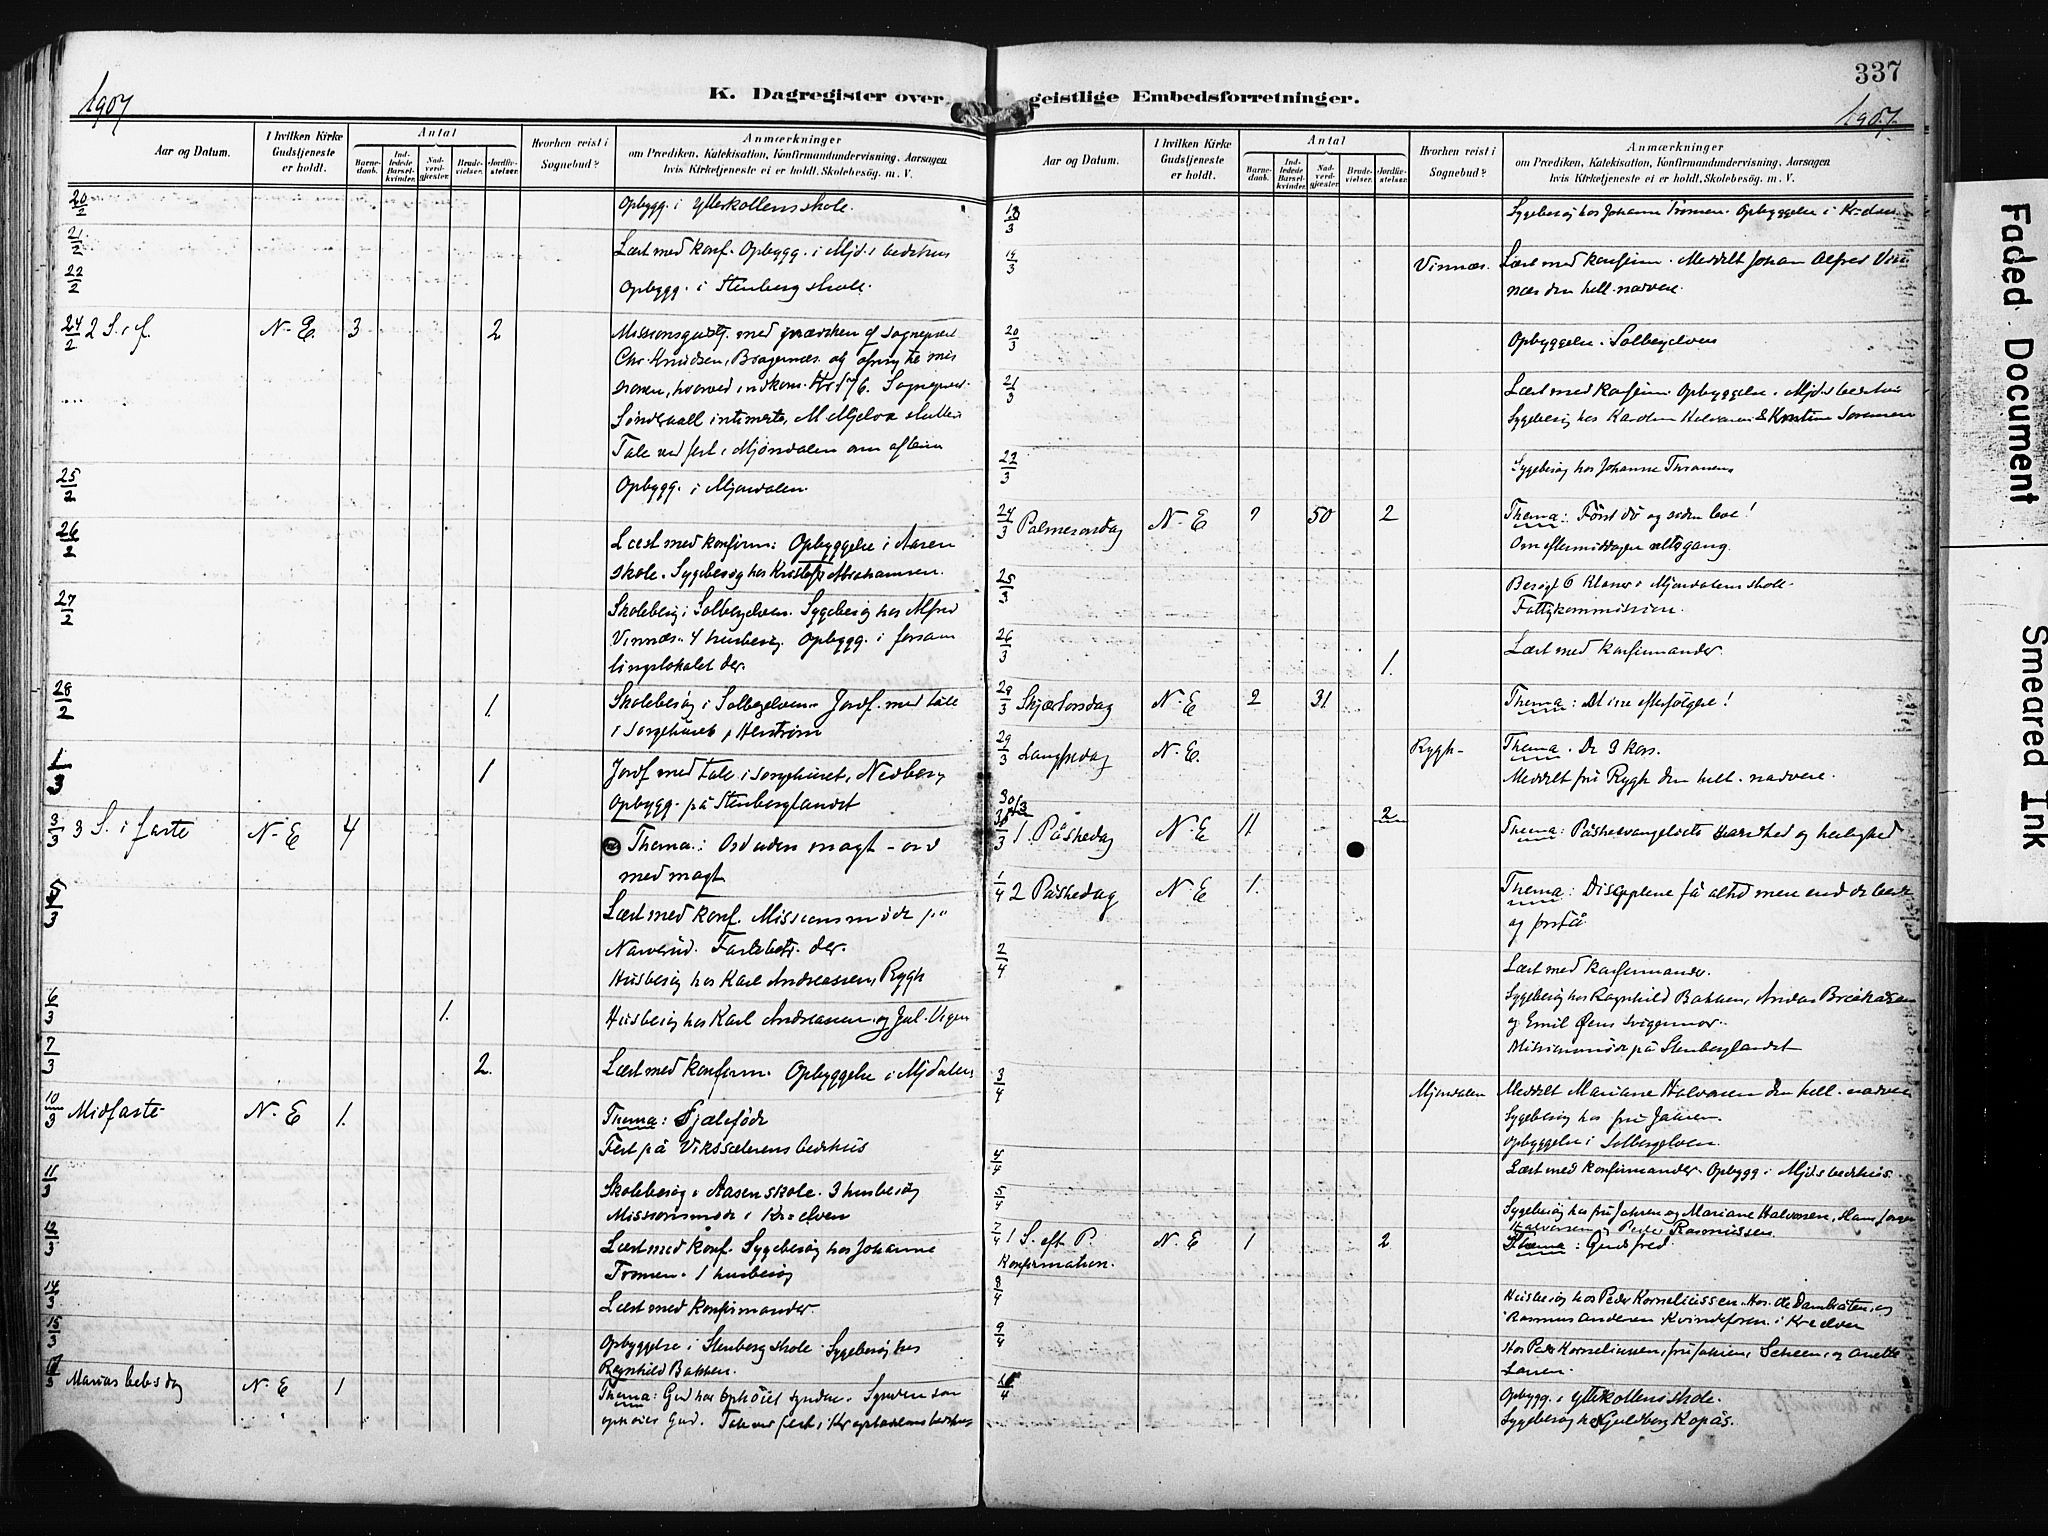 337
1907
1907.
K. Dagregister over geistlige Embedsforretninger.
Aar og Datum.
I hvilken Kirke Gudstjeneste er holdt.
Antal
Barnedaab.
Indledede Barselkvinder.
Nadverdgjester.
Brudevielser.
Jordfæstelser.
Hvorhen reist i Sognebud?
Anmærkninger
om Prædiken, Katekisation, Konfirmandundervisning, Aarsagen
hvis Kirketjeneste ei er holdt, Skolebesøg. m. V.
20/2 Opbygg. i Ytterkollens skole.
21/2 Læst med konf. Opbygg. i Mjd.s bedehus
22/2 Opbygg. i Stenberg skole.
24/2 2 S. i f. N-E. 3 2 Missionsgudstj. med prædiken af Sogneprest
Chr. Knudsen, Bragernæs og
intimerte, M
Tale ved fest i Mjøndalen om aftenen
25/2 Opbygg. i Mjøndalen.
26/2 Læst med konfirm: Opbyggelse i Aasen
skole. Sygebesøg hos Abrahamsen.
27/2 Skolebesøg i Solbergelven. Sygebesøg hos Alfred
Vinnæs. 4 husbesøg. Opbygg. i forsam
lingslokalet der.
28/2 1. Skolebesøg i Solbergelven. Jordf. med tale
i Sorgehuset,
1/3 1 Jordf med tale i sorgehuset, Nedberg
Opbygg. på Stenberglandet
3/3 3 S. i faste N-E 4 Thema: Ord uden magt - ord
med magt
5/3 Læst med konf. Missionsmøde på
Narverud. der.
Husbesøg hos Karl Andreassen, Rygh
6/3 1. Husbesøg hos Karl Andreassen og Jul. Vegen
7/3 2. Læst med konfirm. Opbyggelse i Mjdalen
10/3 Midfaste N-E 1. Thema: Sjæleføde
Fest på Viksæterens bedehus
11/3 Skolebesøg i Aasen skole. 3 husbesøg
Missionsmøde i Kr=elven
12/3 Læst med konf. Sygebesøg hos Johanne
Tronsen. 1 husbesøg
14/3 Læst med konfirmander.
15/3 Opbyggelse i Stenberg skole. Sygebesøg hos
Ragnhild Bakken.
17/3 Marias bebs dag N-E 1 Thema: Gud har ophøiet synden. Synden som
ophøiet Gud. Tale ved fest i bedehus
Aar og Datum.
I hvilken Kirke Gudstjeneste er holdt.
Antal
Barnedaab.
Indledede Barselkvinder.
Nadverdgjester.
Brudevielser.
Jordfæstelser.
Hvorhen reist i Sognebud?
Anmærkninger
om Prædiken, Katekisation, Konfirmandundervisning, Aarsagen
hvis Kirketjeneste ei er holdt, Skolebesøg. m. V.
18/3 Sygebesøg hos Johanne Tronsen. Opbyggelse i
19/3 Vinnæs. Læst med konfirm. Meddelt Johan Alfred Vin
næs den hell. nadvere.
20/3 Opbyggelse i Solbergelven
21/3 Læst med konfirm. Opbyggelse i Mjd.s bedehus
Sygebesøg hos Karoline Halvorsen & Kristine Sørensen
22/3 Sygebesøg hos Johanne Thronsen
24/3 Palmesøndag N-E 50 2 Thema: Først dø og siden leve!
Om eftermiddagen altergang.
25/3 Besøgt 6 klasser i Mjøndalens skole.
Fattigkommission.
26/3 1. Læst med konfirmander.
28/3 Skjærtorsdag N-E 2 31 Thema: Det ene efterfølgere!
29/3 Langfredag N-E. Rygh- Thema: De 3 kors.
Meddelt fru Rygh den hell. nadvere.
30/3 2
31/3 1 Påskedag N-E 11 Thema: Påskeevangeliets sandhed og herlighed
1/4 2 Påskedag N-E 1. Thema: Disciplene få altid mere end de bede
og forstå
2/4 Læst med konfirmander.
Sygebesøg hos Ragnhild Bakken,
og Emil Øens svigermor.
Missionsmøde på Stenberglandet
3/4 Mjøndalen Meddelt Mariane Halvorsen den hell. nadvere
Sygebesøg hos fru Jahren.
Opbyggelse i Solbergelven.
4/4 Læst med konfirmander. Opbygg i Mjds bedehus.
5/4 Sygebesøg hos fru Jahren og Mariane Halvorsen, Hans Jørgen
Halvorsen og Peder Rasmussen
7/4 1 S. eft. P. N-E 1 2 Thema: Guds fred.
Konfirmation.
8/4 Husbesøg hos Peder Korneliussen, og
Rasmus Andersen. Kvindeforen. i Kr=elven
9/4 Hos Peder Korneliussen, fru Jahren, Scheen, og Anette
Larsen.
Opbygg. i Ytterkollens skole.
Sygebesøg hos Guldborg Kopås.
Faded Document
Smeared Ink